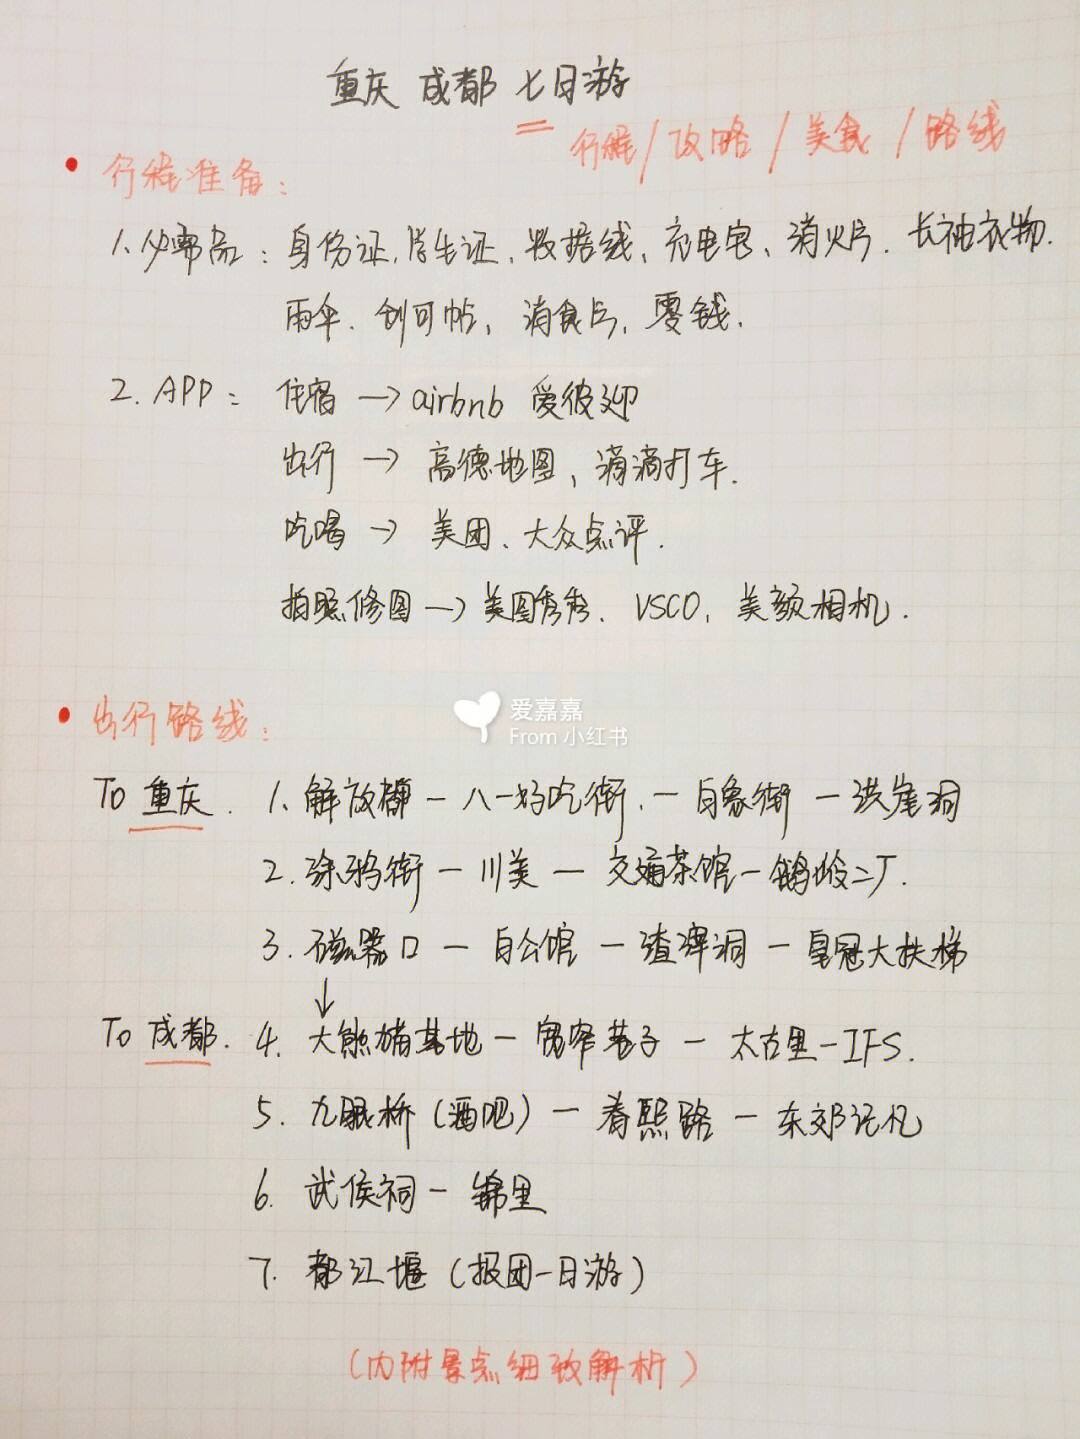 重庆 成都 七日游
行程/攻略/美食/路线
行程准备:
1、必需品:身份证、学生证、数据线、充电宝、消炎片、长袖衣物.
雨伞、创可帖、消食片、零钱.
2. APP: 住宿→airbnb 爱彼迎
出行→高德地图、滴滴打车.
吃喝→美团、大众点评.
拍照修图→美图秀秀、VSCO、美颜相机.
出行路线:
爱嘉嘉
From 小红书
To 重庆. 1、解放碑-八一好吃街.-白象街-洪崖洞
2.涂鸦街-川美-交通茶馆-鹅岭二厂.
3.磁器口-白公馆-渣滓洞-皇冠大扶梯
↓
To 成都. 4.大熊猫基地-宽窄巷子-太古里-IFS.
5.九眼桥(酒吧)-春熙路-东郊记忆
6.武侯祠-锦里
7.都江堰(报团一日游)
(内附景点细致解析)